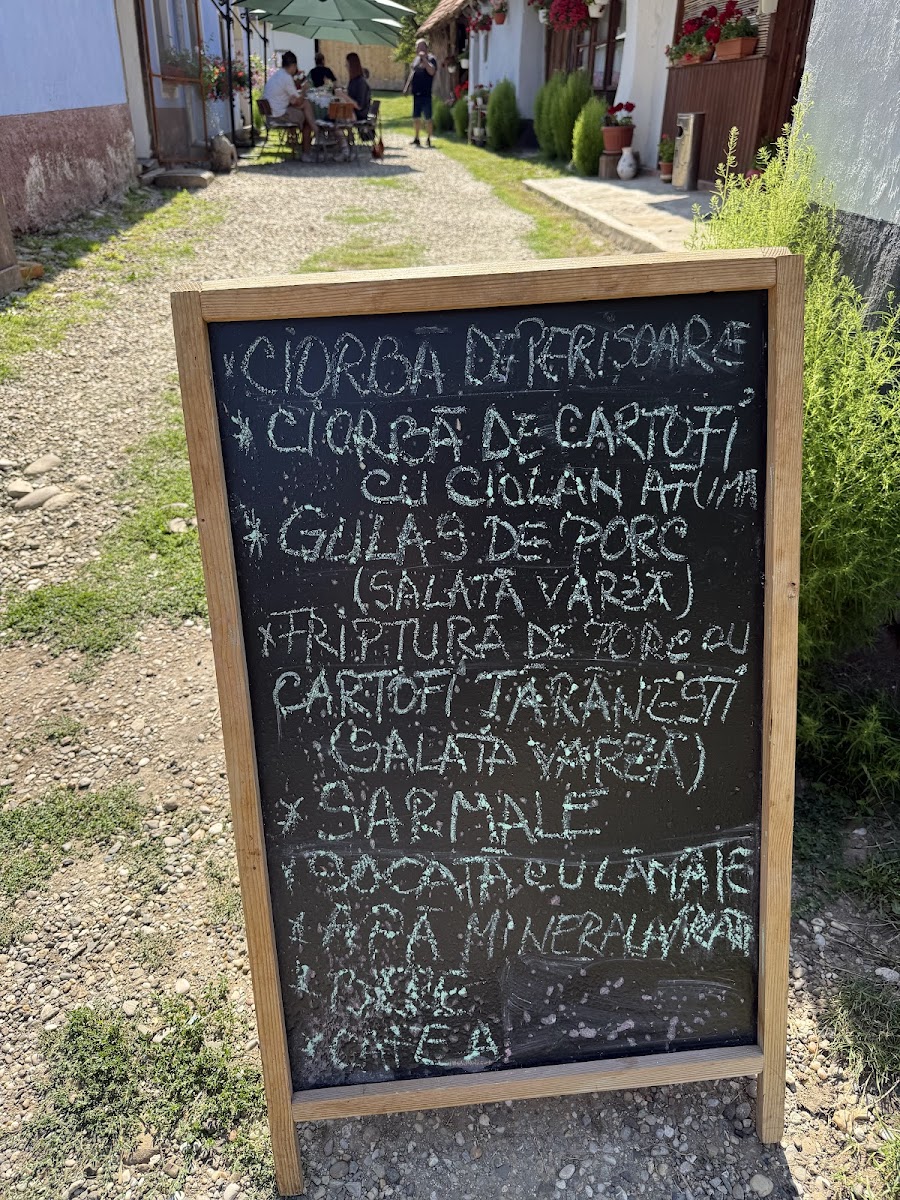 * CIORBĂ DE PERIȘOARE
* CIORBĂ DE CARTOFI
CU CIOLAN AFUMA
* GULAS DE PORC
(SALATĂ VARZĂ)
* FRIPTURĂ DE PORC CU
CARTOFI ȚĂRĂNEȘTI
(SALATĂ VARZĂ)
* SARMALE
* SOCATĂ CU LĂMÂIE
* APĂ MINERALĂ/PLATĂ
* BERE
* CAFEA